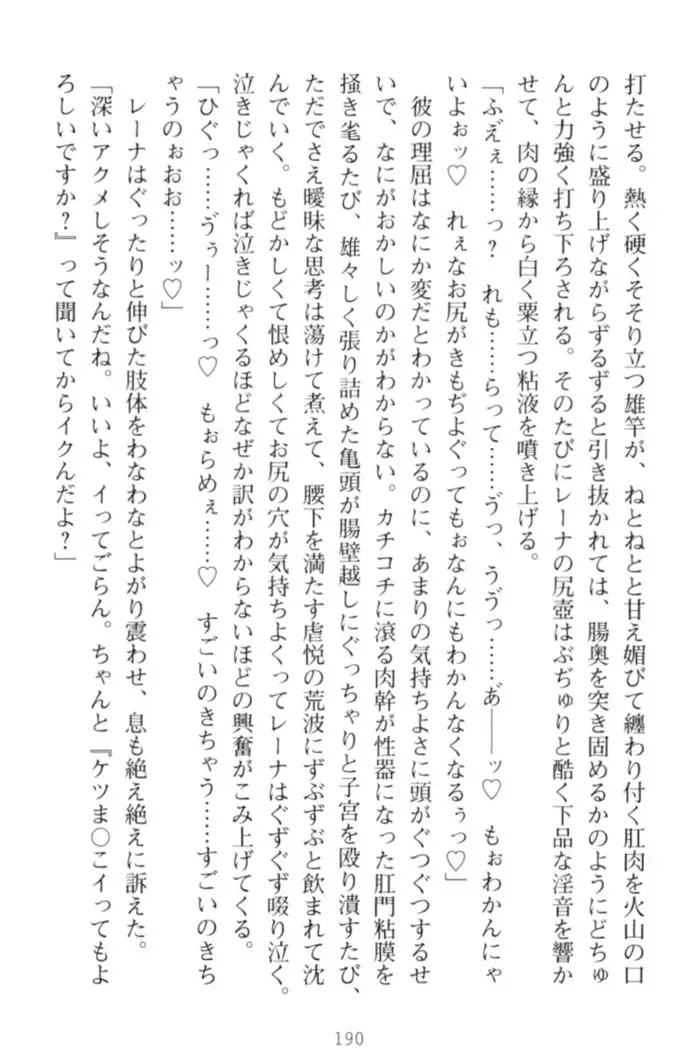 打たせる。熱く硬くそそり立つ雄竿が、ねとねとと甘え媚びて纏わり付く肛肉を火山の口
のように盛り上げながらずるずると引き抜かれては、腸奥を突き固めるかのようにどちゅ
んと力強く打ち下ろされる。そのたびにレーナの尻壺はぶぢゅりと酷く下品な淫音を響か
せて、肉の縁から白く粟立つ粘液を噴き上げる。
「ふえ゛ぇ……っ？　れも……らって……う゛っ、うう゛っ……あ゛――ッ♡　もぉわかんにゃ
いよぉッ♡　れぇなお尻がきもぢよぐってもぉなんにもわかんなくなるぅっ♡」
　彼の理屈はなにか変だとわかっているのに、あまりの気持ちよさに頭がぐつぐつするせ
いで、なにがおかしいのかがわからない。カチコチに滾る肉幹が性器になった肛門粘膜を
掻き毟るたび、雄々しく張り詰めた亀頭が腸壁越しにぐっちゃりと子宮を殴り潰すたび、
ただでさえ曖昧な思考は蕩けて煮えて、腰下を満たす虐悦の荒波にずぶずぶと飲まれて沈
んでいく。もどかしくて恨めしくてお尻の穴が気持ちよくってレーナはぐずぐず啜り泣く。
泣きじゃくれば泣きじゃくるほどなぜか訳がわからないほどの興奮がこみ上げてくる。
「ひぐっ……う゛ぅー……っ♡　もぉらめぇ……♡　すごいのきちゃう……すごいのきち
ゃうのぉおお……ッ♡」
　レーナはぐったりと伸びた肢体をわなわなとよがり震わせ、息も絶え絶えに訴えた。
「深いアクメしそうなんだね。いいよ、イってごらん。ちゃんと『ケツま○こイってもよ
ろしいですか？』って聞いてからイクんだよ？」
190